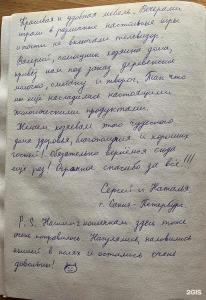 Красивая и удобная мебель. Вечерами
играли в различные настольные игры
и почти не включали телевизор.
Валерий, помощник хозяина дома,
привёз нам под заказ деревенские
молоко, сметану и творог. Так что
мы ещё насладились настоящими
экологическими продуктами.
Желаем хозяевам этого чудесного
дома здоровья, благополучия и хороших
гостей! Обязательно вернёмся сюда
ещё раз! Огромное спасибо за всё!!!
Сергей и Наталья
г. Санкт-Петербург.
P.S. Нашим кошечкам здесь тоже
очень понравилось. Нагулялись, наловились
мышей в полях и остались очень
довольны!
2GIS